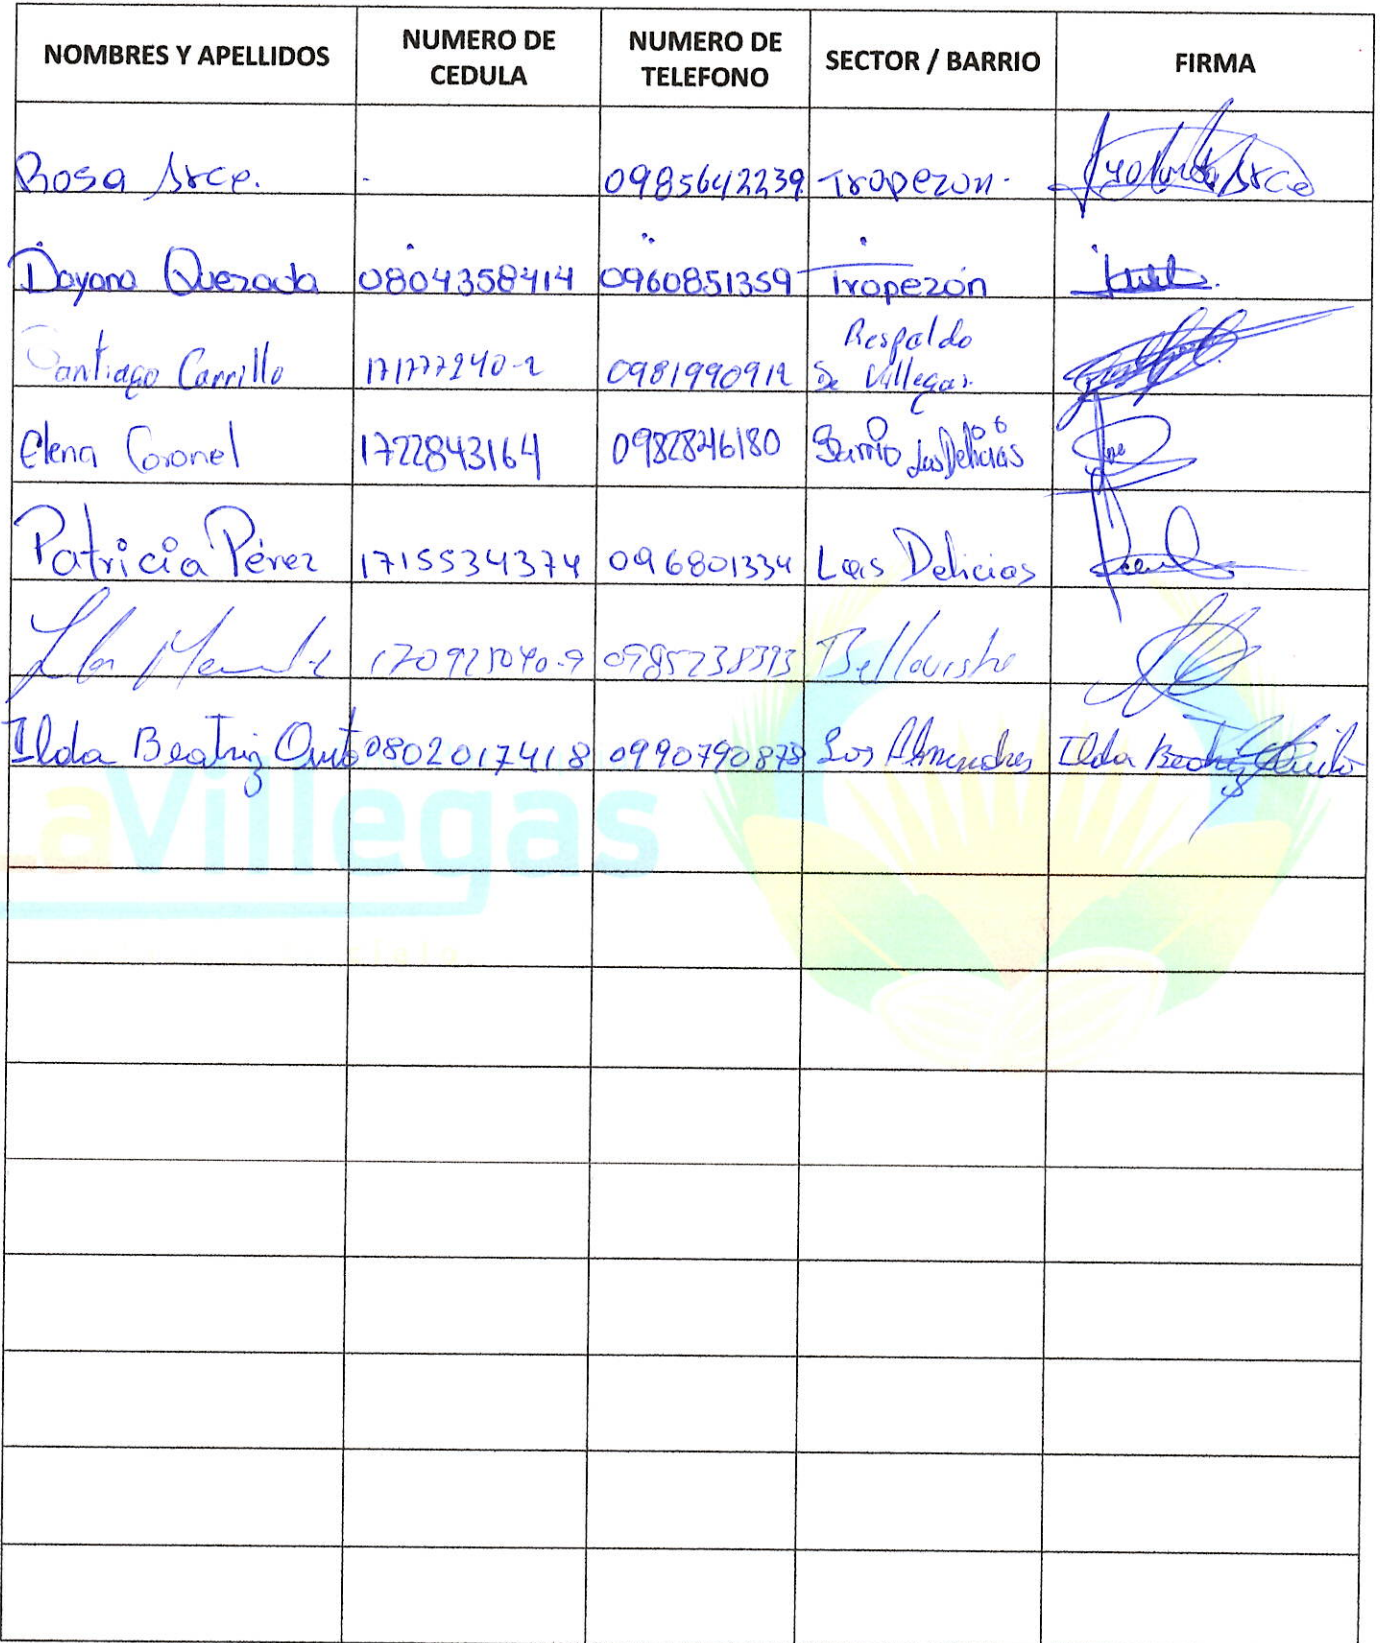 NOMBRES Y APELLIDOS NUMERO DE CEDULA NUMERO DE TELEFONO SECTOR / BARRIO FIRMA
Rosa Arce. - 0985642239 Tropezon.
Dayana Quezada 0804358414 0960851359 Tropezón
Santiago Carrillo 171777240-2 0981990912 Respaldo De Villegas.
Elena Coronel 1722843164 0982846180 Barrio Las Delicias
Patricia Pérez 1715534374 096801334 Las Delicias
Bellavista
Ilda Beatriz Quito 0802017418 0990790878 Los Almendros Ilda Beatriz Quito
LaVillegas